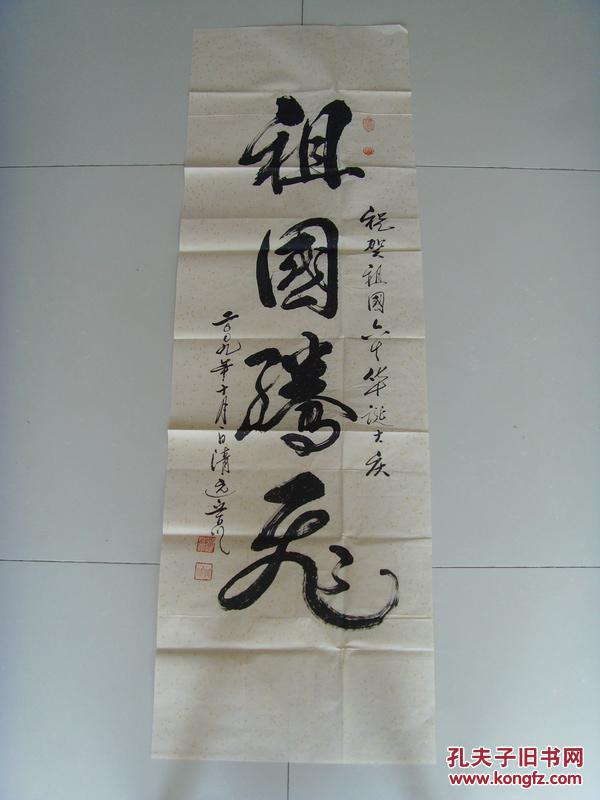 祝贺祖國六十华诞大庆
祖國騰飞
二〇〇九年十月一日清远
孔夫子旧书网
www.kongfz.com